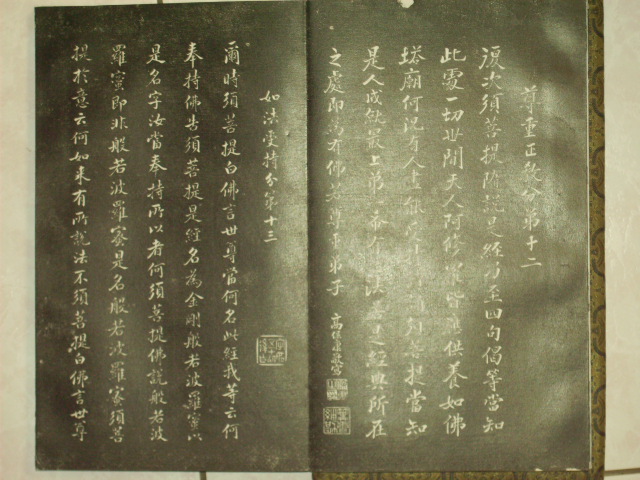 尊重正教分第十二
復次須菩提隨說是經乃至四句偈等當知
此處一切世間天人阿修羅皆應供養如佛
塔廟何況有人盡能受持讀誦須菩提當知
是人成就最上第一希有之法若是經典所在
之處即為有佛若尊重弟子
如法受持分第十三
爾時須菩提白佛言世尊當何名此經我等云何
奉持佛告須菩提是經名為金剛般若波羅蜜以
是名字汝當奉持所以者何須菩提佛說般若波
羅蜜即非般若波羅蜜是名般若波羅蜜須菩
提於意云何如來有所說法不須菩提白佛言世尊